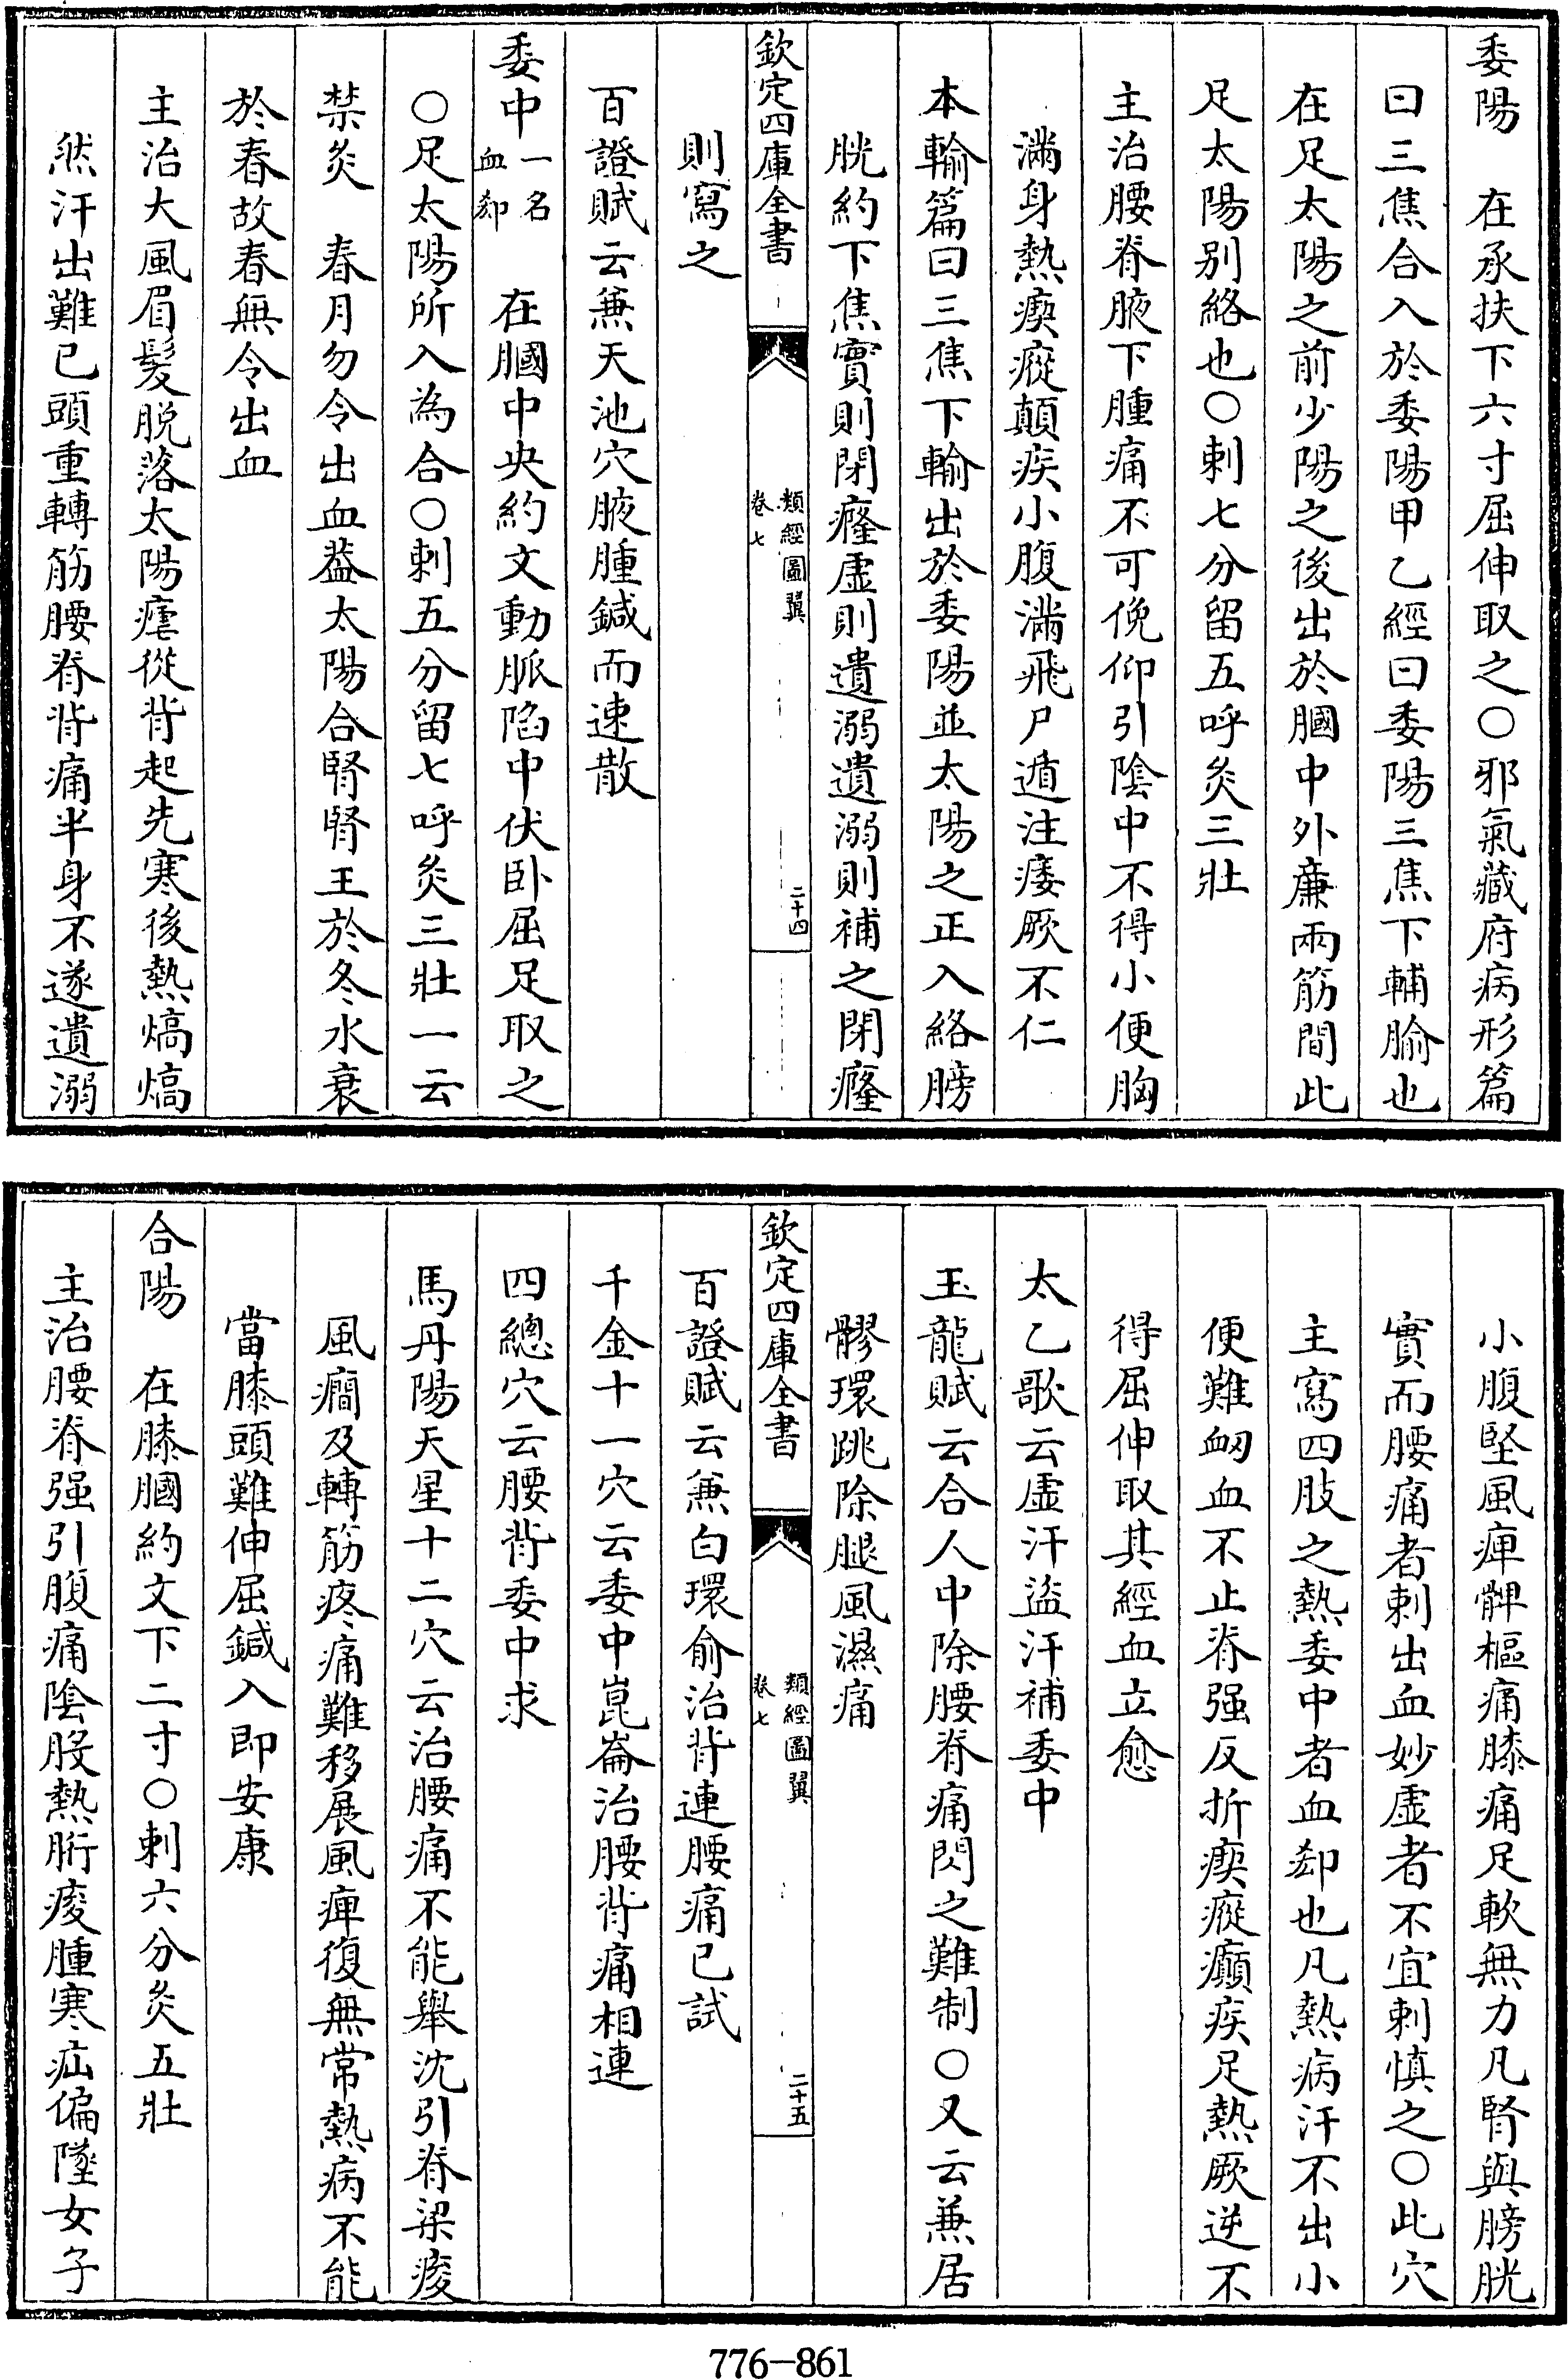 委陽　在承扶下六寸屈伸取之○邪氣藏府病形篇
曰三焦合入於委陽甲乙經曰委陽三焦下輔腧也
在足太陽之前少陽之後出於膕中外廉兩筋間此
足太陽别絡也○刺七分留五呼灸三壯
主治腰脊腋下腫痛不可俛仰引陰中不得小便胸
滿身熱瘈瘲顛疾小腹滿飛尸遁注痿厥不仁
本輸篇曰三焦下輸出於委陽並太陽之正入絡膀
胱約下焦實則閉癃虛則遺溺遺溺則補之閉癃
則寫之
欽定四庫全書
類經圖翼
卷七
二十四
百證賦云兼天池穴腋腫鍼而速散
委中一名血郄　在膕中央約文動脈陷中伏卧屈足取之
○足太陽所入為合○刺五分留七呼灸三壯一云
禁灸　春月勿令出血葢太陽合腎腎王於冬水衰
於春故春無令出血
主治大風眉髮脱落太陽瘧從背起先寒後熱熇熇
然汗出難已頭重轉筋腰脊背痛半身不遂遺溺
小腹堅風痺髀樞痛膝痛足軟無力凡腎與膀胱
實而腰痛者刺出血妙虛者不宜刺慎之○此穴
主寫四肢之熱委中者血郄也凡熱病汗不出小
便難衂血不止脊强反折瘈瘲癲疾足熱厥逆不
得屈伸取其經血立愈
太乙歌云虛汗盜汗補委中
玉龍賦云合人中除腰脊痛閃之難制○又云兼居
髎環跳除腿風濕痛
欽定四庫全書
類經圖翼
卷七
二十五
百證賦云兼白環俞治背連腰痛已試
千金十一穴云委中崑崙治腰背痛相連
四總穴云腰背委中求
馬丹陽天星十二穴云治腰痛不能舉沈引脊梁痠
風癎及轉筋疼痛難移展風痺復無常熱病不能
當膝頭難伸屈鍼入即安康
合陽　在膝膕約文下二寸○刺六分灸五壯
主治腰脊强引腹痛陰股熱胻痠腫寒疝偏墜女子
776-861